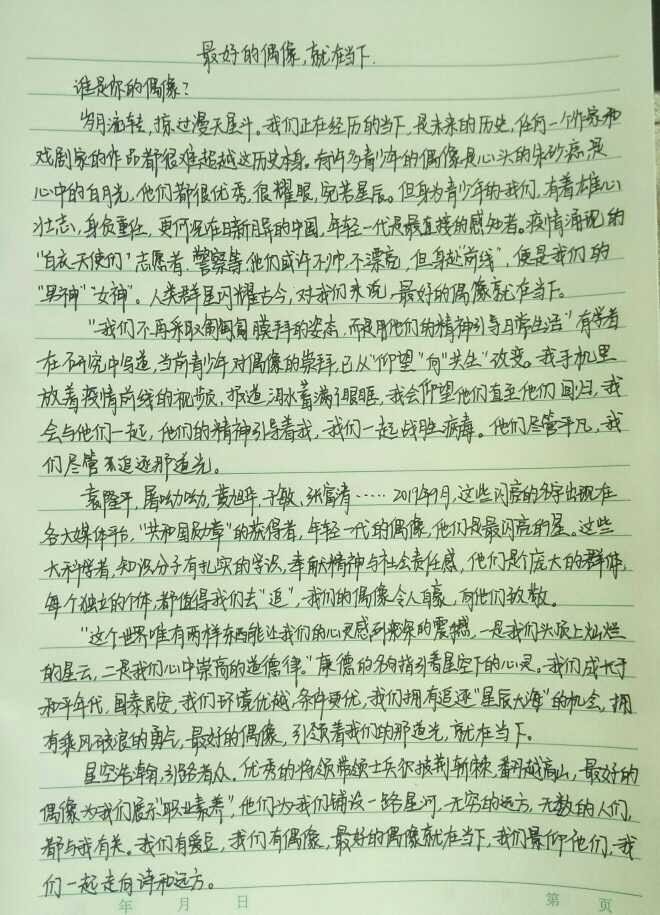 最好的偶像,就在当下.
谁是你的偶像?
岁月流转,掠过漫天星斗。我们正在经历的当下,是未来的历史,任何一个作家和
戏剧家的作品都很难超越这历史本身。有许多青少年的偶像是心头的朱砂痣,是
心中的白月光,他们都很优秀,很耀眼,宛若星辰。但身为青少年的我们,有着雄心
壮志,身负重任,更何况在日新月异的中国,年轻一代是最直接的感知者。疫情涌现的
“白衣天使们”志愿者、警察等,他们或许不帅,不漂亮,但身处“前线”,便是我们的
“男神”“女神”。人类群星闪耀古今,对我们来说,最好的偶像就在当下。
“我们不再采取顶膜拜的姿态,而是用他们的精神引导日常生活”有学者
在研究中写道,当前青少年对偶像的崇拜,已从“仰望”向“共生”改变。我手机里
放着疫情前线的视频,报道,泪水蓄满了眼眶,我会仰望他们直至他们回归,我
会与他们一起,他们的精神引导着我,我们一起战胜病毒。他们尽管平凡,我
们尽管去追逐那道光。
袁隆平,屠呦呦,黄旭华,于敏,张富清……2019年9月,这些闪亮的名字出现在
各大媒体平台,“共和国勋章”的获得者,年轻一代的偶像,他们是最闪亮的星。这些
大科学者,知识分子有扎实的学识,奉献精神与社会责任感,他们是个庞大的群体,
每个独立的个体,都值得我们去“追”,我们的偶像令人自豪,向他们致敬。
“这个世界唯有两样东西能让我们的心灵感到深深的震撼,一是我们头顶上灿烂
的星云,二是我们心中崇高的道德律。”康德的名句指引着星空下的心灵。我们成长于
和平年代,国泰民安,我们环境优越,条件更优,我们拥有追逐“星辰大海”的机会,拥
有乘风破浪的勇气,最好的偶像,引领着我们的那道光,就在当下。
星空浩瀚,引路者众。优秀的将领带领士兵们披荆斩棘,翻越高山,最好的
偶像为我们展示“职业素养”,他们为我们铺设一路星河,无穷的远方,无数的人们,
都与我有关。我们有爱豆,我们有偶像,最好的偶像就在当下,我们景仰他们,我
们一起走向诗和远方。
年 月 日 第 页